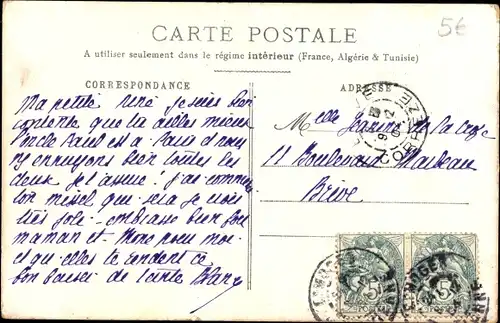 CARTE POSTALE
56
A utiliser seulement dans le régime intérieur (France, Algérie & Tunisie)
CORRESPONDANCE
ADRESSE
Ma petite je suis bien
contente que tu ailles mieux
l'oncle Paul est a Paris et nous
ny ennuyons bien toutes les
deux je t'assure! j'ai
un missel que sera je crois
très joli embrasse bien fort
maman et pour moi
et qu'elles te rendent ce
bon baiser de tante
Melle de la
11 Boulevard
Brive
CORREZE
5 5